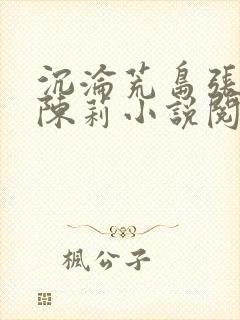 沉淪荒島張
陳莉小說閱
楓公子